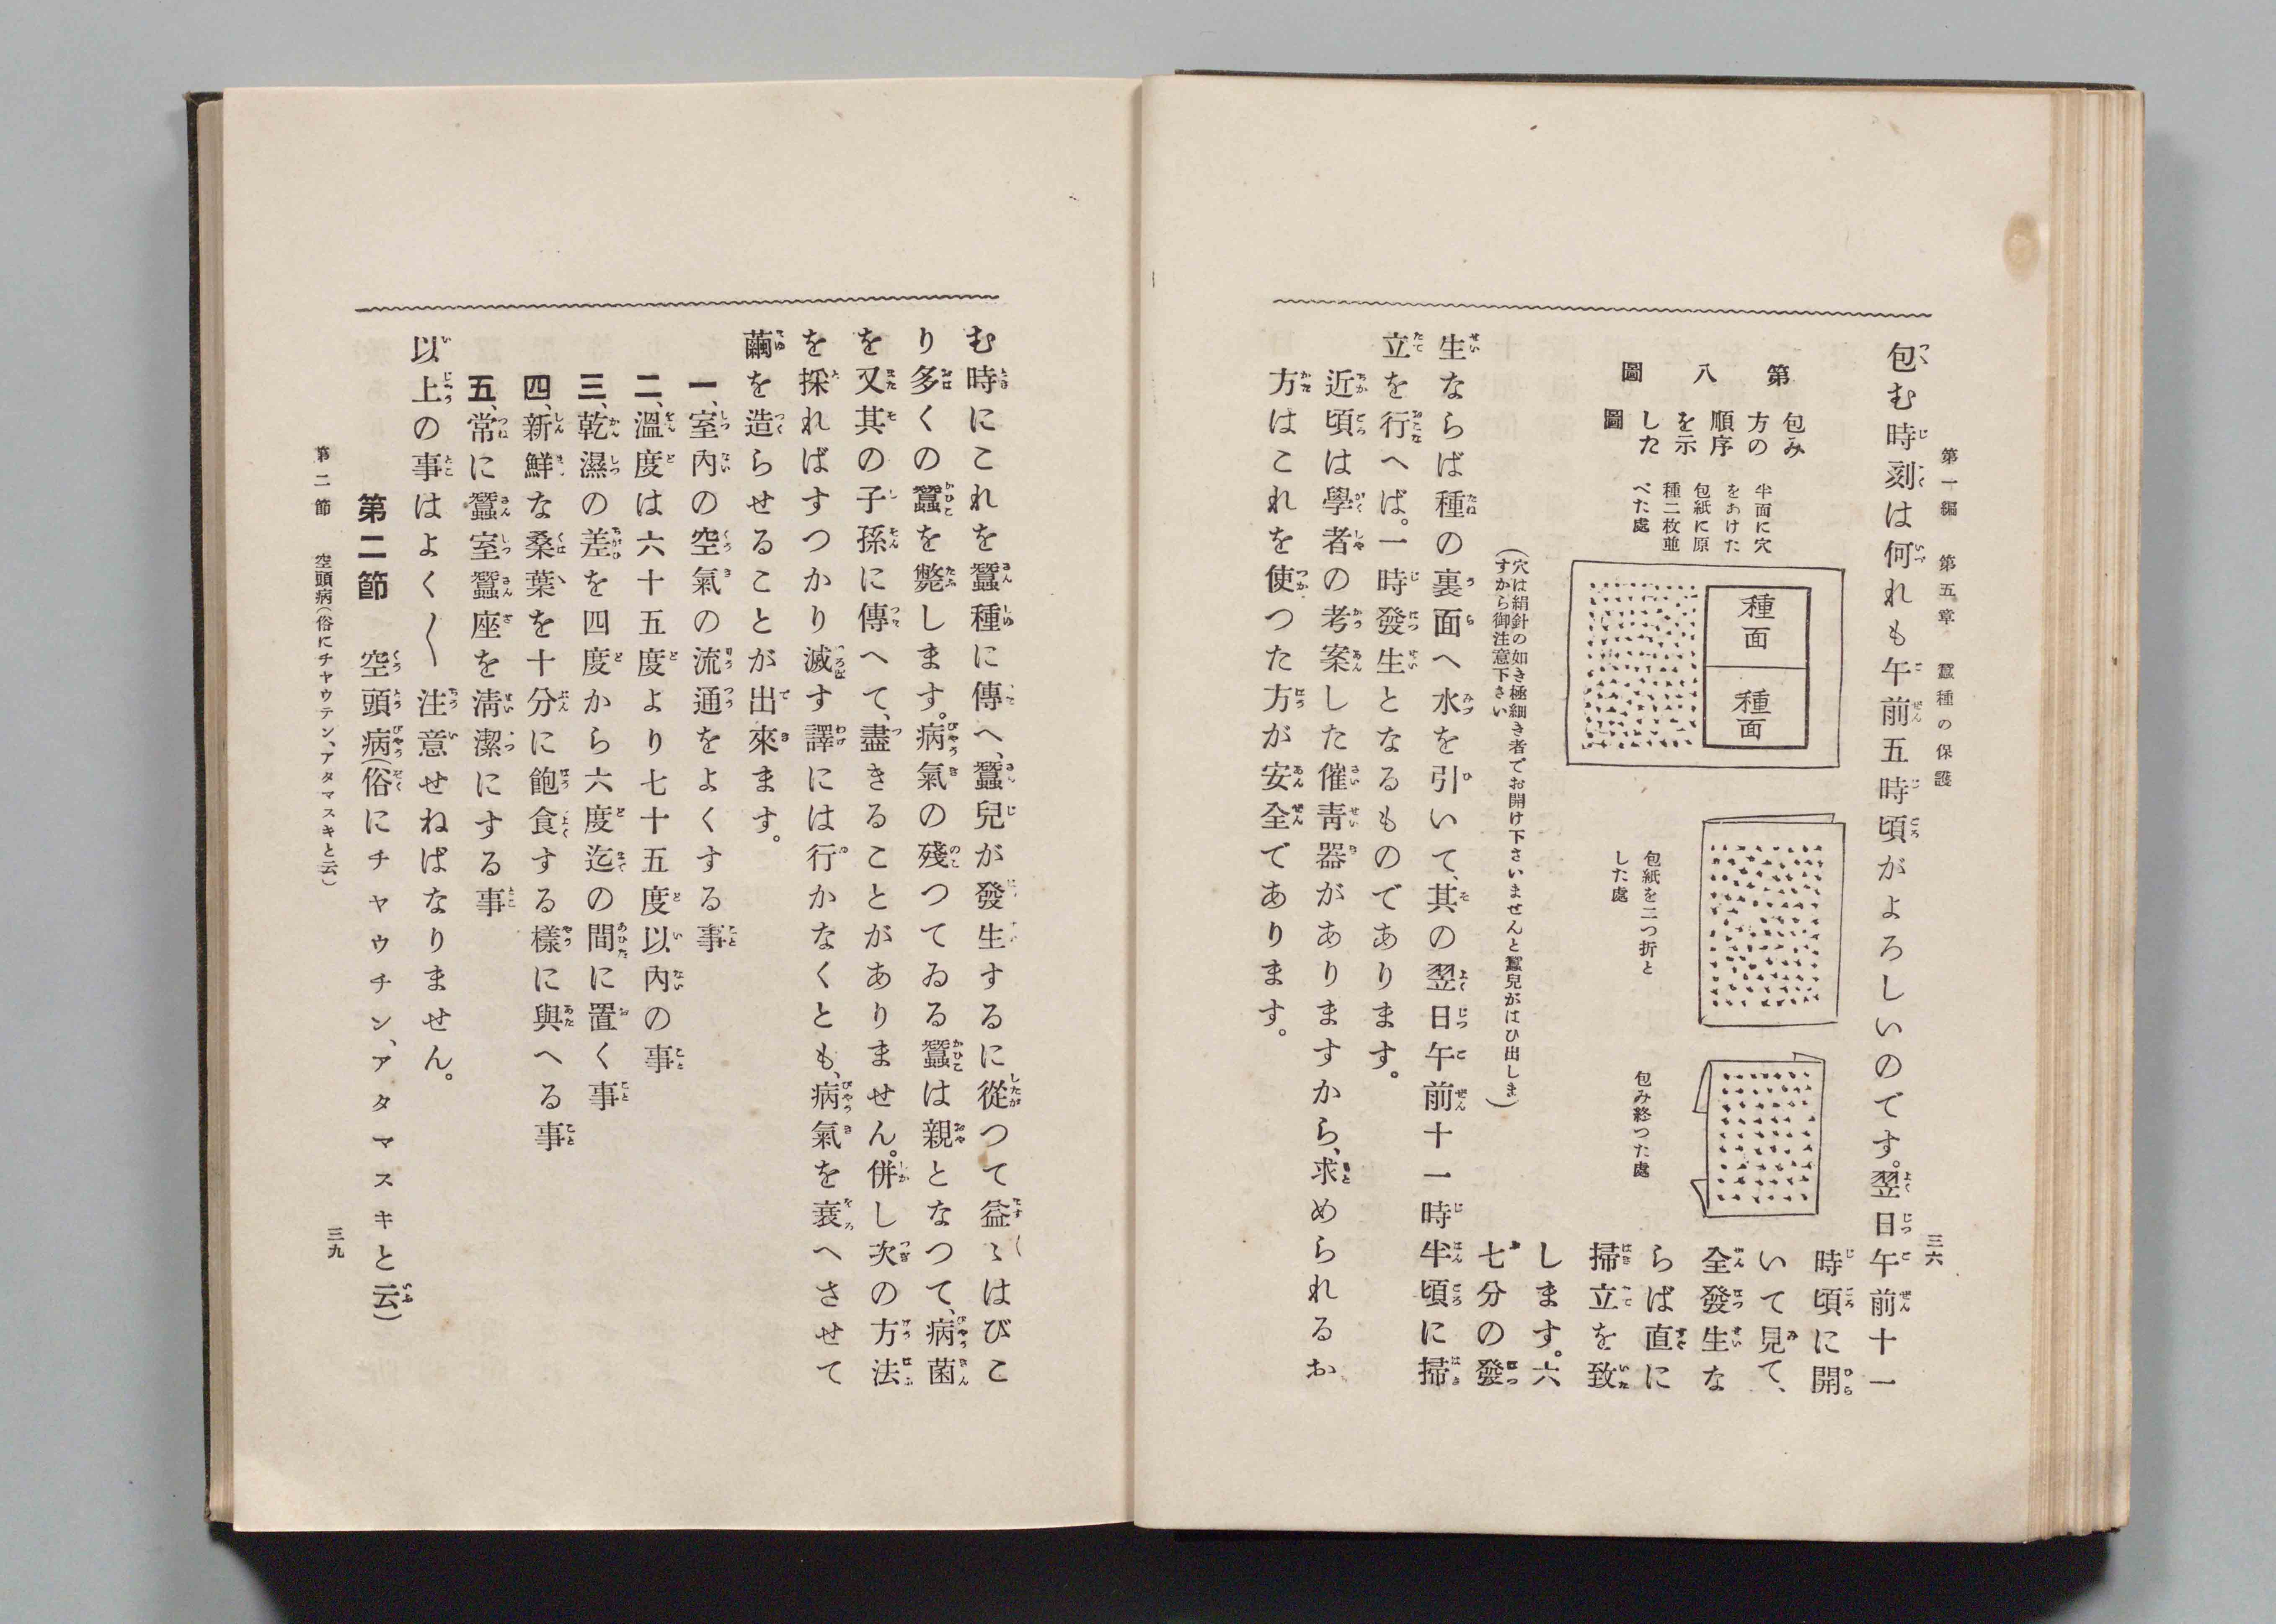 第一編　第五章　蠶種の保護
三六
包む時刻は何れも午前五時頃がよろしいのです。翌日午前十一
時頃に開
いて見て、
全發生な
らば直に
掃立を致
します。六
七分の發
第八圖
包み
方の
順序
を示
した
圖
半面に穴
をあけた
包紙に原
種二枚並
べた處
種面
種面
包紙を二つ折と
した處
包み終つた處
(穴は絹針の如き極細き者でお開け下さいませんと蠶兒がはひ出しま
すから御注意下さい)
生ならば種の裏面へ水を引いて、其の翌日午前十一時半頃に掃
立を行へば。一時發生となるものであります。
近頃は學者の考案した催靑器がありますから、求められるお
方はこれを使つた方が安全であります。
む時にこれを蠶種に傳へ、蠶兒が發生するに從つて益〻はびこ
り多くの蠶を斃します。病氣の殘つてゐる蠶は親となつて、病菌
を又其の子孫に傳へて、盡きることがありません。併し次の方法
を採ればすつかり滅す譯には行かなくとも、病氣を衰へさせて
繭を造らせることが出來ます。
一、室內の空氣の流通をよくする事
二、溫度は六十五度より七十五度以內の事
三、乾濕の差を四度から六度迄の間に置く事
四、新鮮な桑葉を十分に飽食する樣に與へる事
五、常に蠶室蠶座を淸潔にする事
以上の事はよく〱注意せねばなりません。
第二節　空頭病(俗にチャウチン、アタマスキと云)
第二節　空頭病(俗にチヤウテン、アタマスキと云)
三九